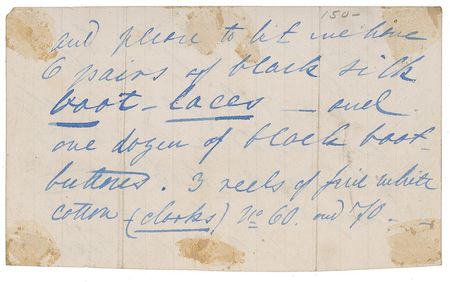 150-
and please to let me have
6 pairs of black silk
boot-laces — and
one dozen of black boot-
buttons. 3 reels of fine white
cotton (clarks) No 60. and 70. —